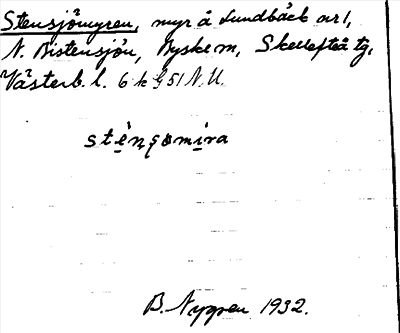 Stensjömyren, myr å Lundbäck ar 1,
N. Bistensjön, Byske m, Skellefteå tg,
Västerb. l. 6 k G 51 N.U.
stènsomira
B. Nygren 1932.